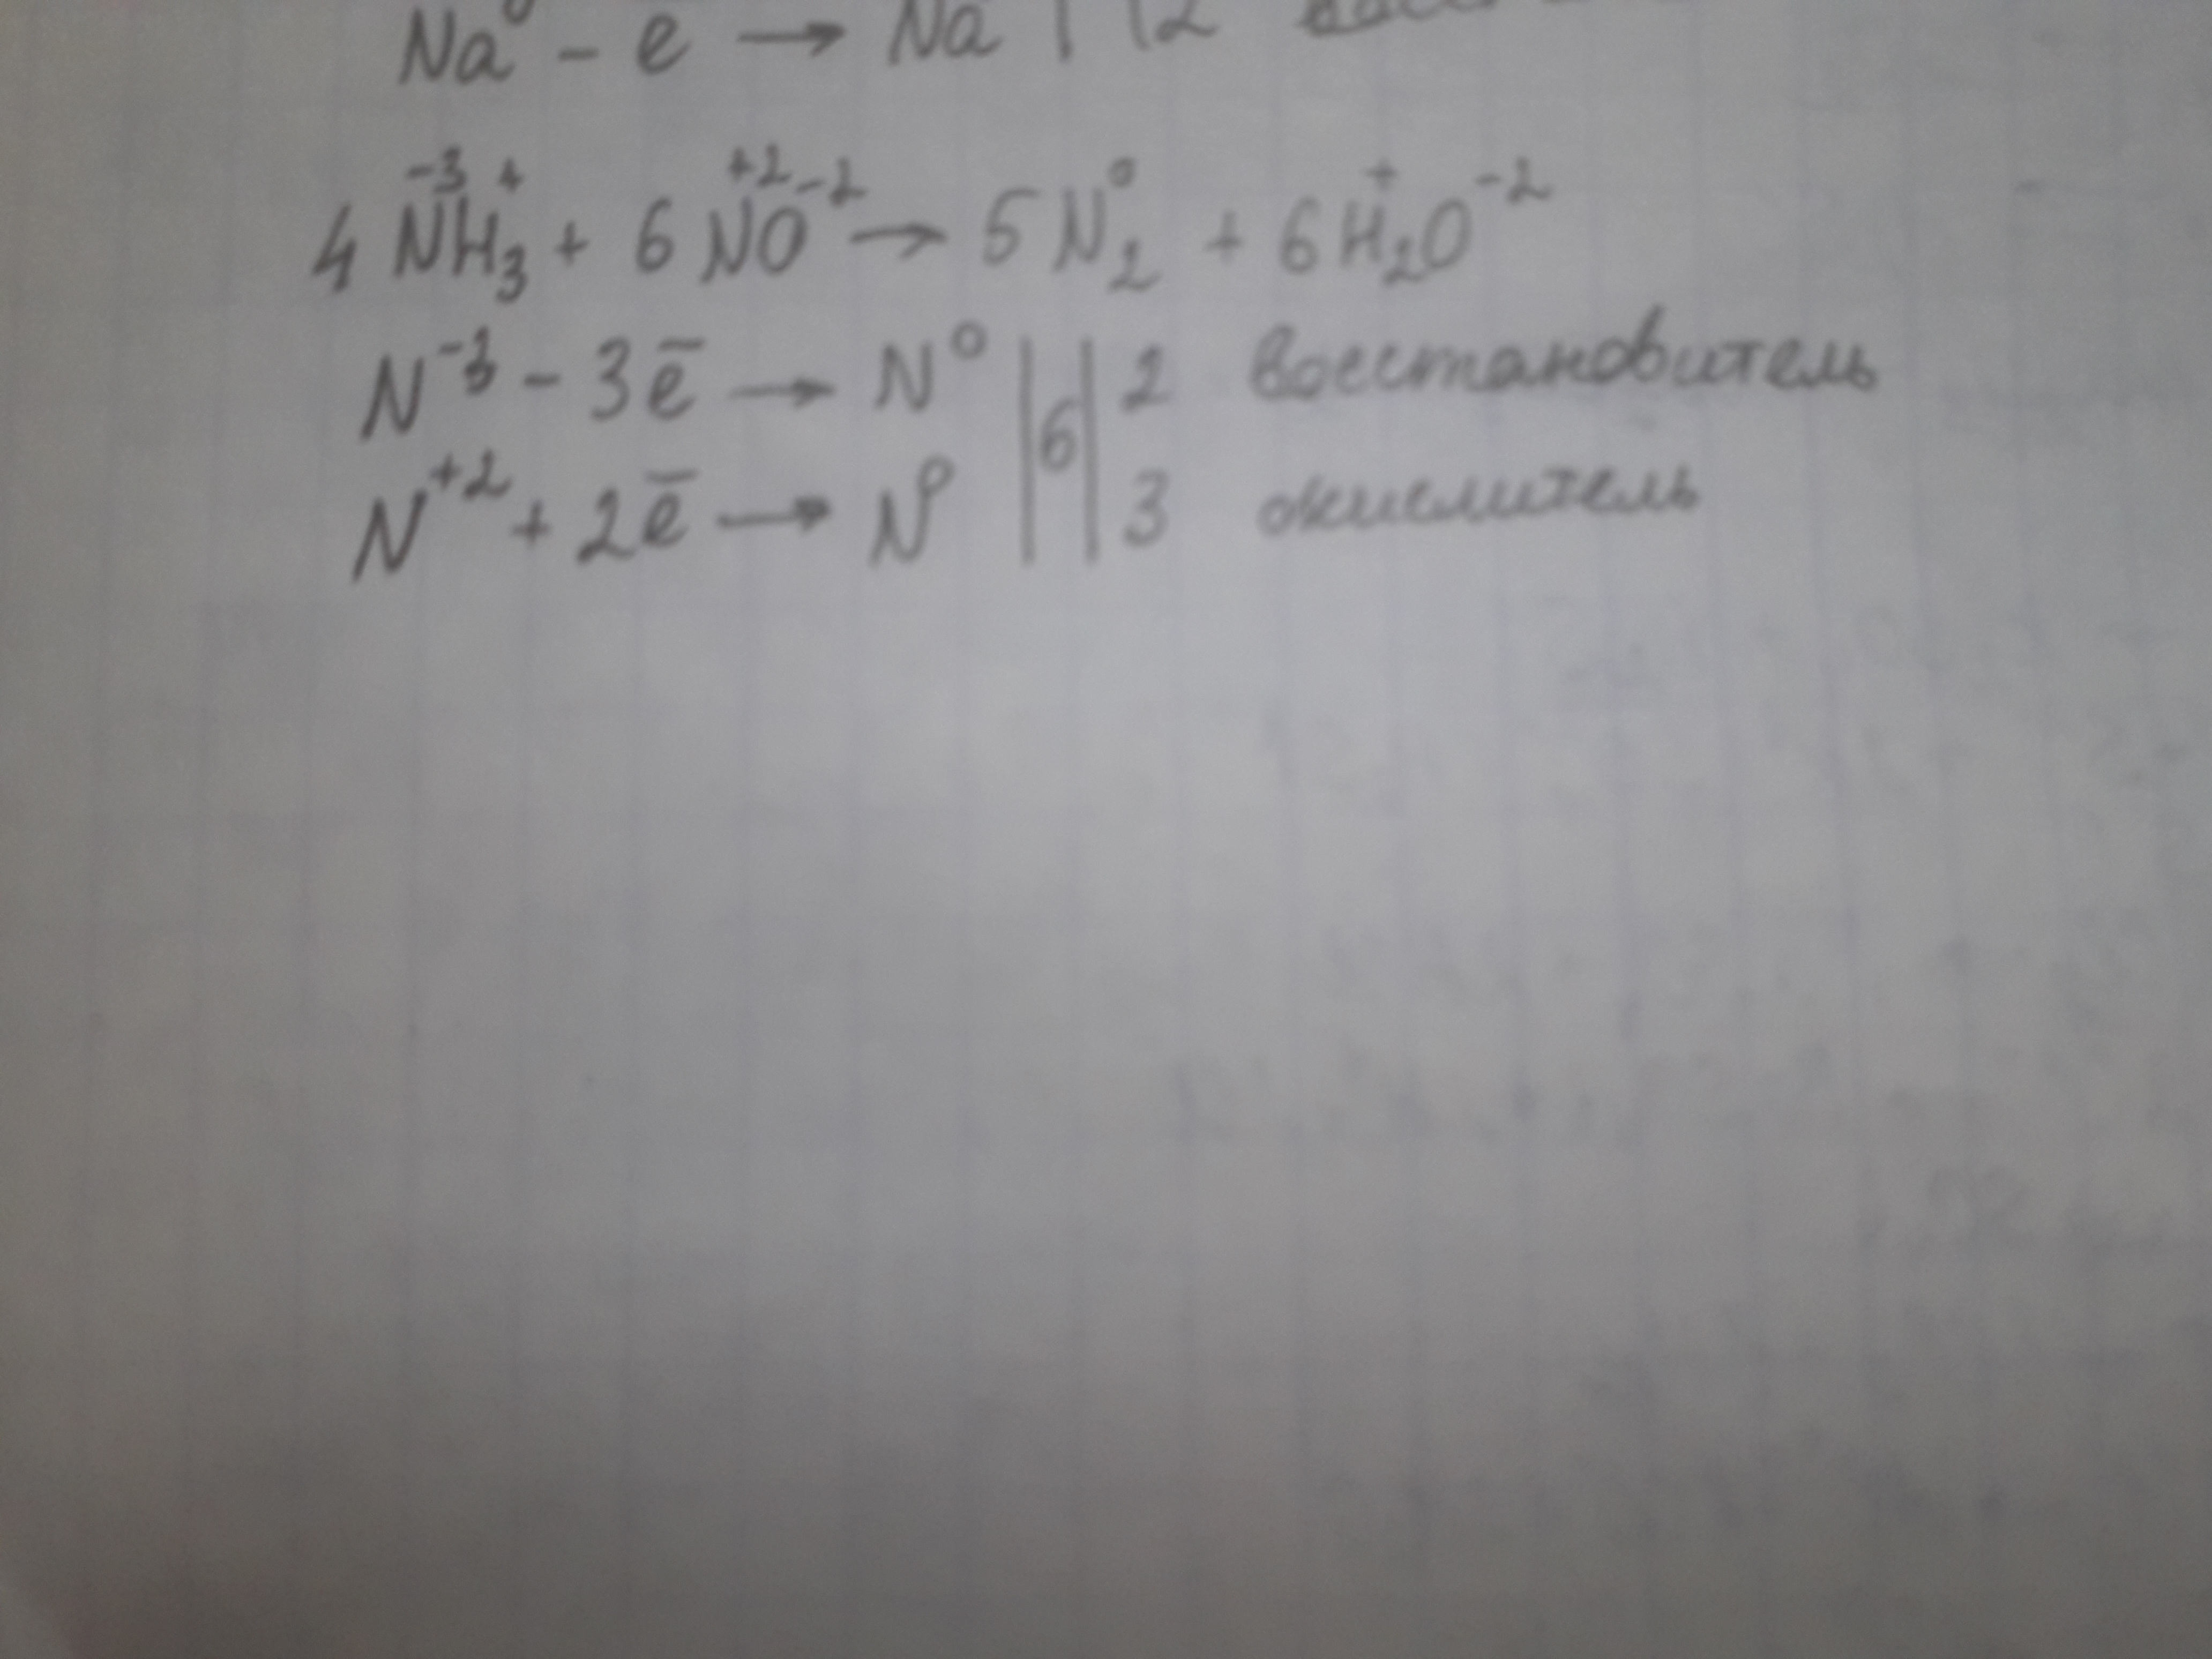 Na⁰ - e → Na | | 2
4 N⁻³H₃⁺ + 6 N⁺²O⁻² → 5 N₂⁰ + 6 H₂⁺O⁻²
N⁻³ - 3ē → N⁰ | 6 | 2 восстановитель
N⁺² + 2ē → N⁰ | | 3 окислитель